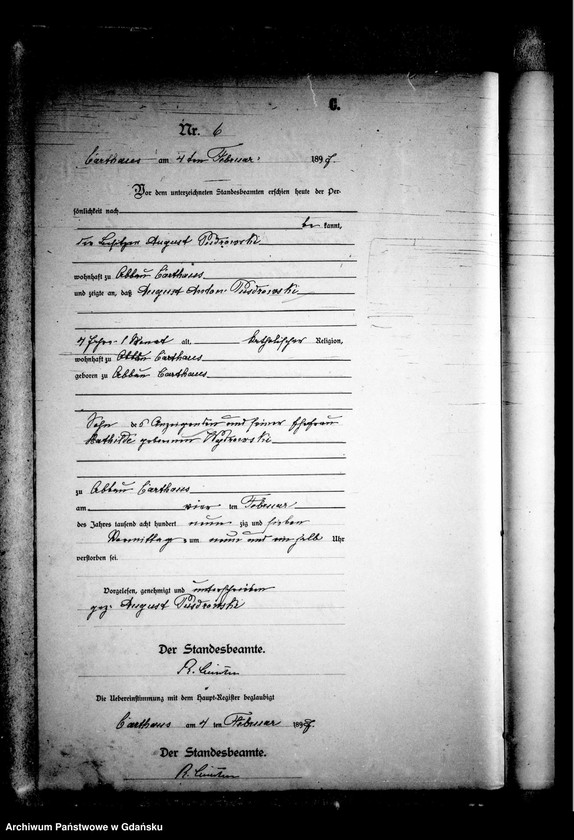 C.
Nr. 6
Carthaus am 4 ten Februar 1897.
Vor dem unterzeichneten Standesbeamten erschien heute der Per-
sönlichkeit nach
be kannt,
der Besitzer August
wohnhaft zu Abbau Carthaus
und zeigte an, daß August Anton
4 Jahre 1 Monat alt, katholischer Religion,
wohnhaft zu Abbau Carthaus
geboren zu Abbau Carthaus
Sohn des Anzeigenden und seiner Ehefrau
Mathilde geborenen
zu Abbau Carthaus
am vier ten Februar
des Jahres tausend acht hundert neun zig und sieben
Vormittags um neun und ein halb Uhr
verstorben sei.
Vorgelesen, genehmigt und unterschrieben
gez. August
Der Standesbeamte.
Die Uebereinstimmung mit dem Haupt-Register beglaubigt
Carthaus am 4 ten Februar 1897.
Der Standesbeamte.
Archiwum Państwowe w Gdańsku